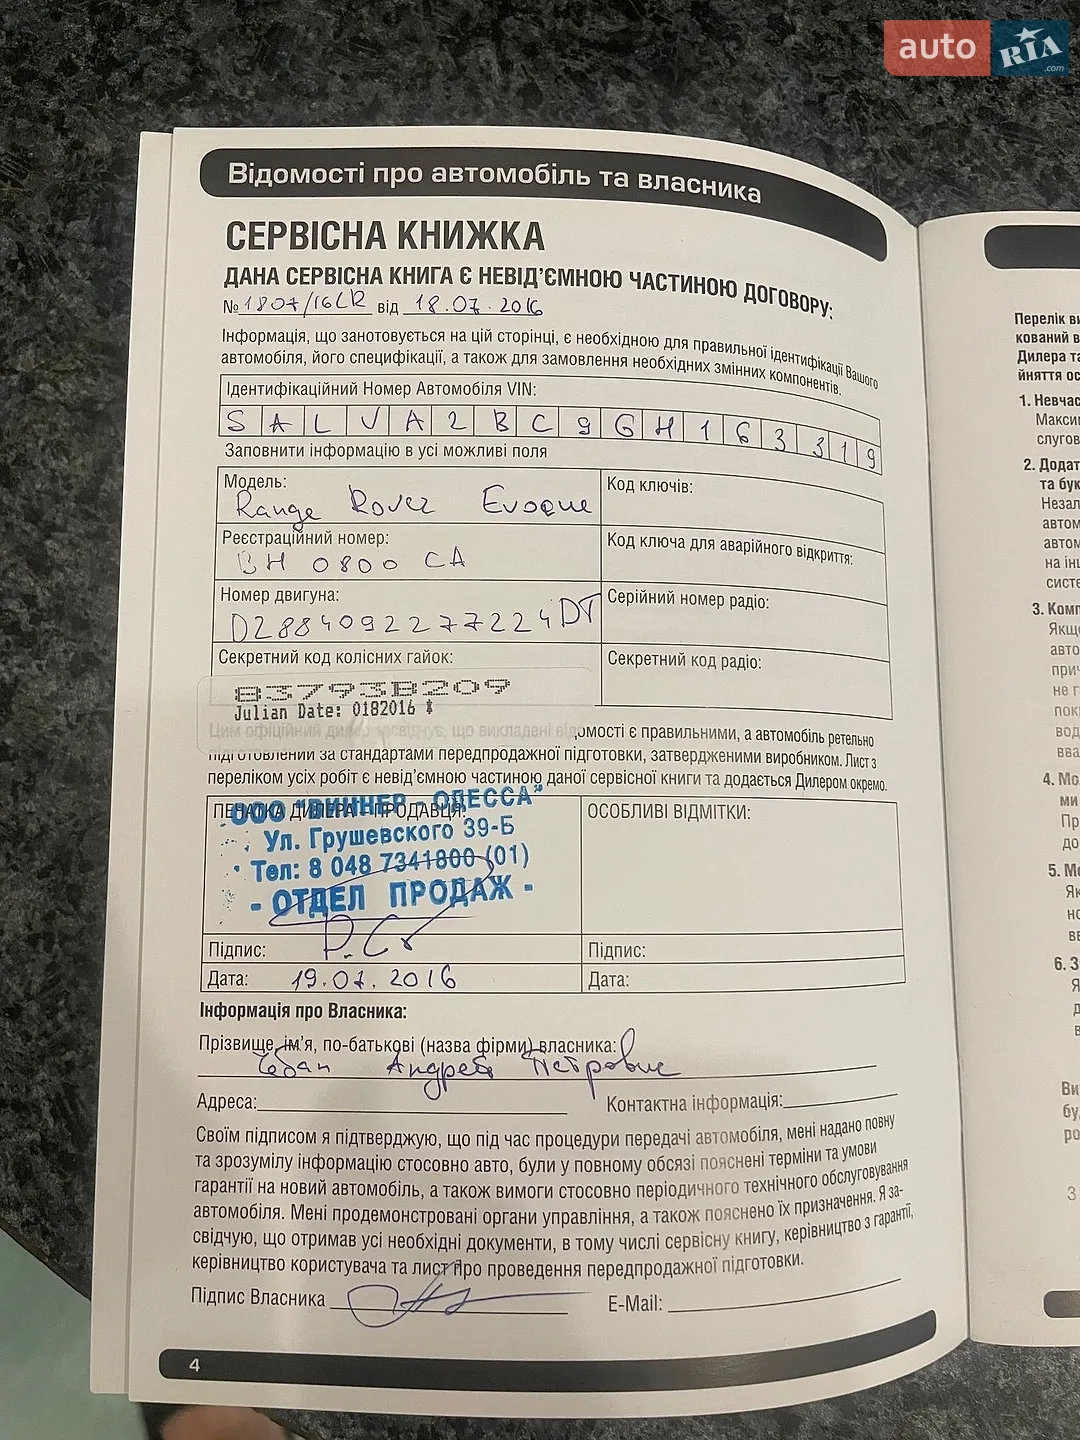 auto RIA .com
Відомості про автомобіль та власника
СЕРВІСНА КНИЖКА
ДАНА СЕРВІСНА КНИГА Є НЕВІД'ЄМНОЮ ЧАСТИНОЮ ДОГОВОРУ:
№ 1807/16LR від 18.07.2016
Інформація, що занотовується на цій сторінці, є необхідною для правильної ідентифікації Вашого
автомобіля, його специфікації, а також для замовлення необхідних змінних компонентів.
Ідентифікаційний Номер Автомобіля VIN:
S A L V A 2 B C 9 G H 1 6 3 3 1 9
Заповнити інформацію в усі можливі поля
Модель: Range Rover Evoque
Код ключів:
Реєстраційний номер: BH 0800 CA
Код ключа для аварійного відкриття:
Номер двигуна: D2884092277224DT
Серійний номер радіо:
Секретний код колісних гайок:
Секретний код радіо:
83793B209
Julian Date: 0182016 *
Цим офіційний дилер засвідчує, що викладені відомості є правильними, а автомобіль ретельно
підготовлений за стандартами передпродажної підготовки, затвердженими виробником. Лист з
переліком усіх робіт є невід'ємною частиною даної сервісної книги та додається Дилером окремо.
ПЕЧАТКА ДИЛЕРА - ПРОДАВЦЯ:
ОСОБЛИВІ ВІДМІТКИ:
ООО "ВИННЕР - ОДЕССА"
Ул. Грушевского 39-Б
Тел: 8 048 7341800 (01)
- ОТДЕЛ ПРОДАЖ -
Підпис:
Підпис:
Дата: 19.07.2016
Дата:
Інформація про Власника:
Прізвище, ім'я, по-батькові (назва фірми) власника:
Чебан Андрей Петрович
Адреса:
Контактна інформація:
Своїм підписом я підтверджую, що під час процедури передачі автомобіля, мені надано повну
та зрозумілу інформацію стосовно авто, були у повному обсязі пояснені терміни та умови
гарантії на новий автомобіль, а також вимоги стосовно періодичного технічного обслуговування
автомобіля. Мені продемонстровані органи управління, а також пояснено їх призначення. Я за-
свідчую, що отримав усі необхідні документи, в тому числі сервісну книгу, керівництво з гарантії,
керівництво користувача та лист про проведення передпродажної підготовки.
Підпис Власника
E-Mail:
4
Перелік
кований
Дилера та
йняття
1. Невчас
Макси
слугов
2. Додат
та
Незал
автом
автом
на
систе
3. Комп
Якщо
авто
прич
не
пок
вод
вва
4. Мо
ми
Пр
до
5.
Як
но
вв
6. З
Я
д
в
Ви
бу
ро